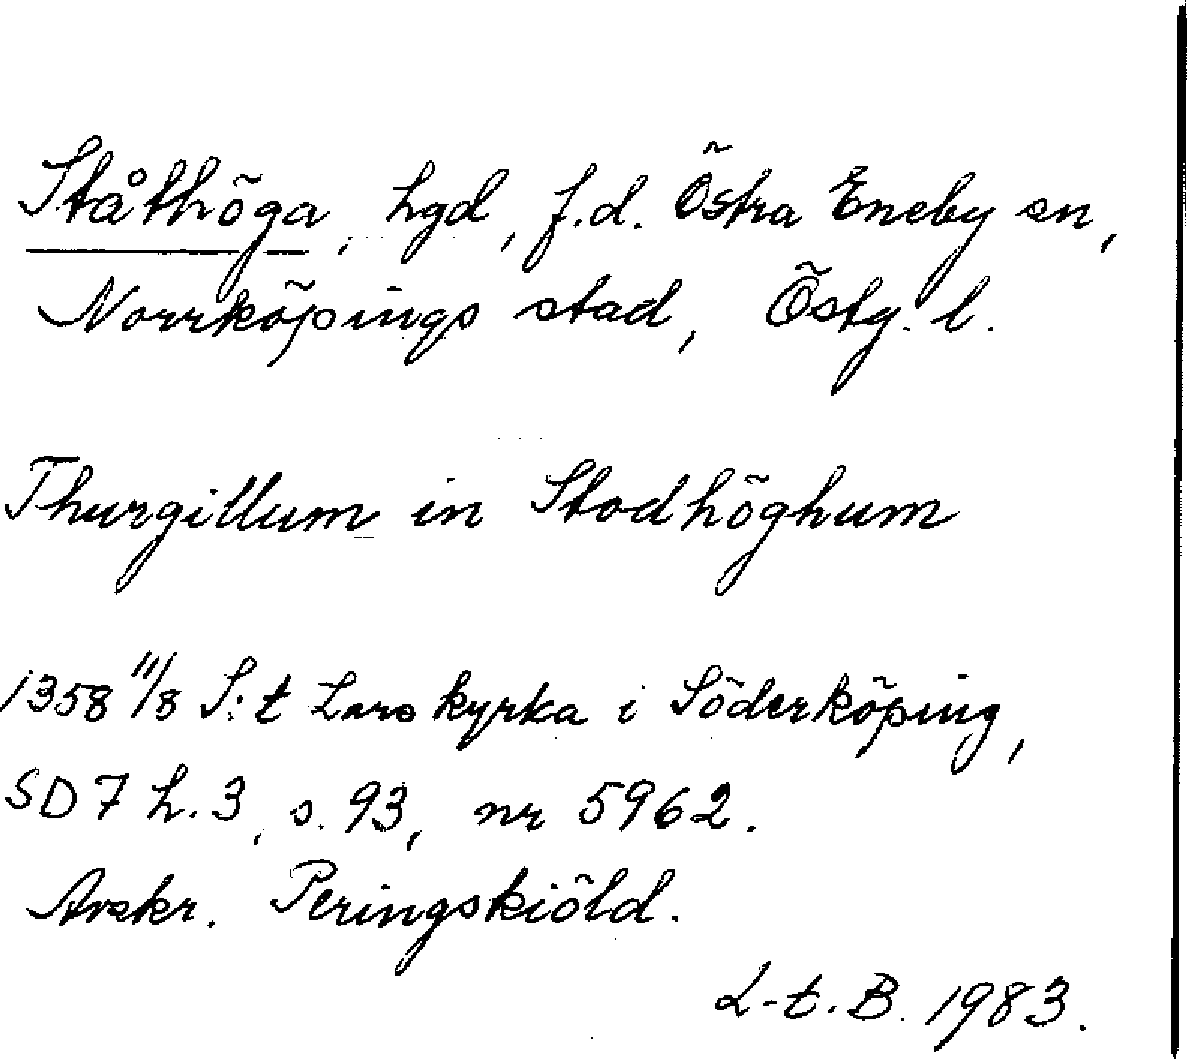 Ståthöga, hgd, f.d. Östra Eneby sn,
Norrköpings stad, Östg. l.
Thurgillum in Stodhöghum
1358 11/8 S:t Lars kyrka i Söderköping,
SD 7 h. 3, s. 93, nr 5962.
Avskr. Peringskiöld.
L-t. B. 1983.